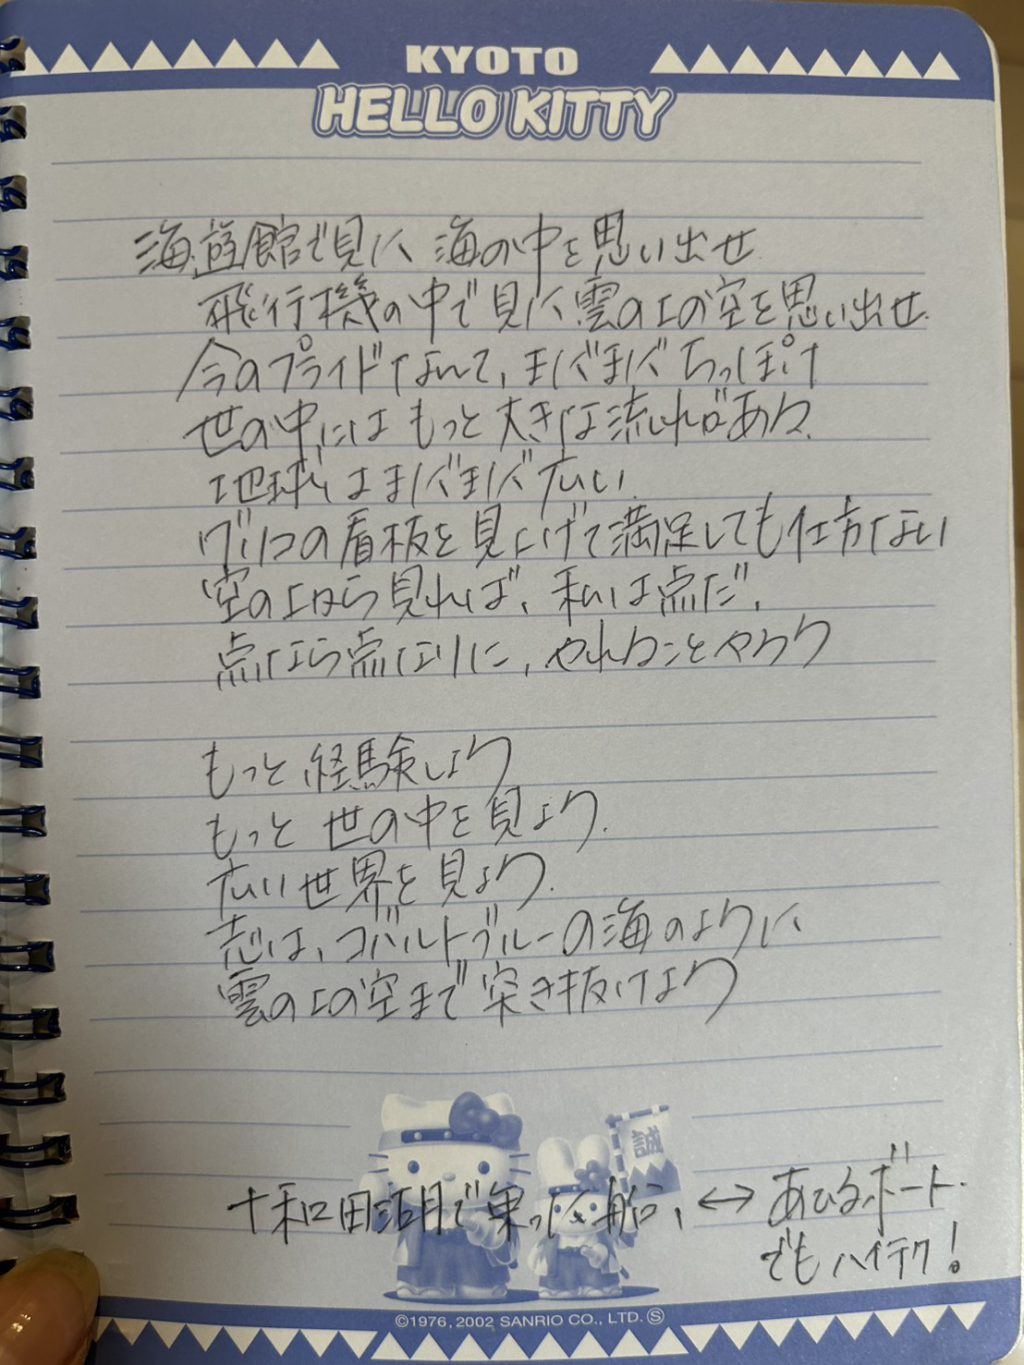 KYOTO
HELLO KITTY
海遊館で見た 海の中を思い出せ
飛行機の中で見た雲の上の空を思い出せ.
今のプライドなんて、まだまだちっぽけ
世の中にはもっと大きな流れがある.
地球はまだまだ広い.
グリコの看板を見上げて満足しても仕方ない
空の上から見れば、私は点だ.
点なら点なりに、やれることやろう
もっと経験しよう
もっと 世の中を見よう.
広い世界を見よう.
志は、コバルトブルーの海のように
雲の上の空まで突き抜けよう
誠
十和田湖で乗った船、↔ あひるボート.
でもハイテク!
©1976, 2002 SANRIO CO., LTD. Ⓢ